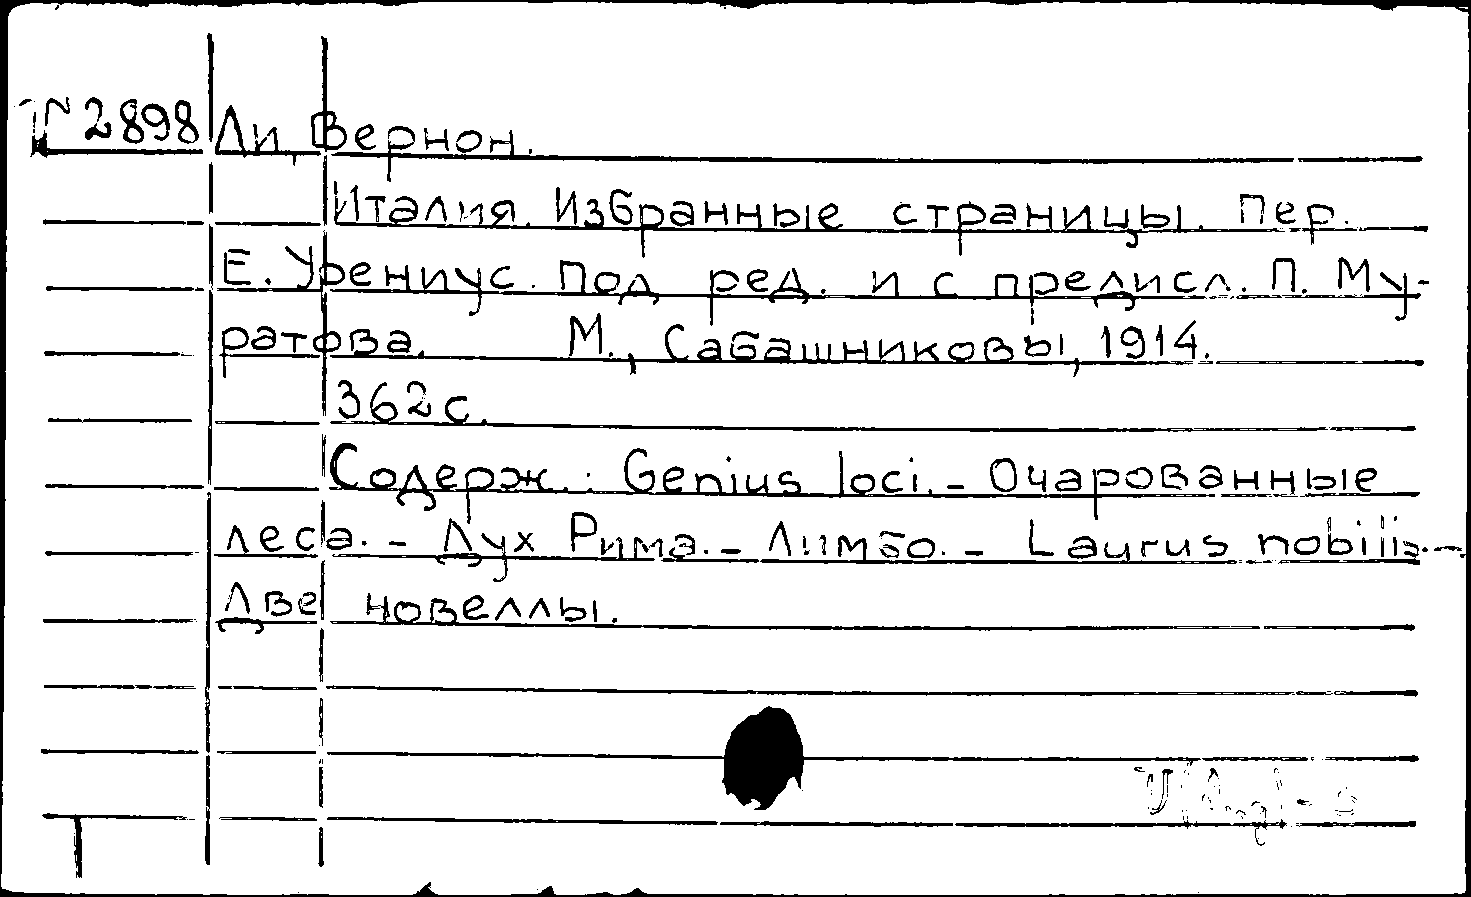 2898 Ли, Вернон.
Италия. Избранные страницы. Пер.
Е. Урениус. Под ред. и с предисл. П. Му-
ратова. М., Сабашниковы, 1914.
362 с.
Содерж.: Genius loci. - Очарованные
леса. - Дух Рима. - Лимбо. - Laurus nobilis. -
Две новеллы.